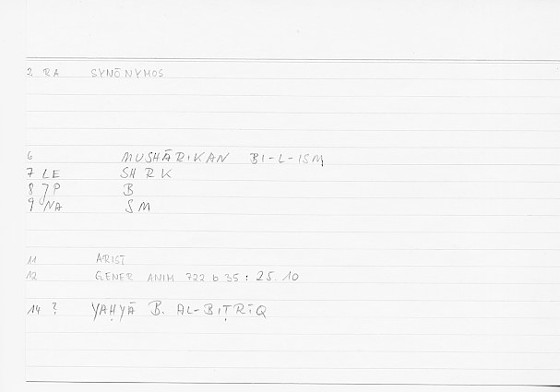 2 RA SYNŌNYMOS
6 MUSHĀRIKAN BI-L-ISM
7 LE SH R K
8 JP B
9 NA SM
11 ARIST
12 GENER ANIM 722 b 35 : 25.10
14 ? YAḤYĀ B. AL-BIṬRĪQ